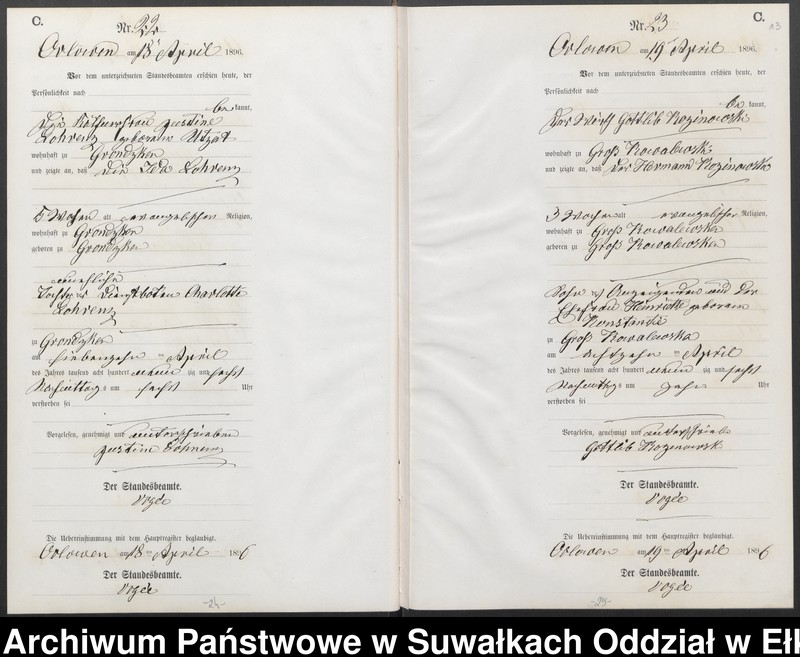 C.
Nr. 22
Orlowen am 18 April 1896.
Vor dem unterzeichneten Standesbeamten erschien heute, der
Persönlichkeit nach
be kannt,
die Käthnerfrau Justine
Lohrenz geborene Utzat
wohnhaft zu Grondzken
und zeigte an, daß die Ida Lohrenz
5 Wochen alt evangelischer Religion,
wohnhaft zu Grondzken
geboren zu Grondzken
unehliche
Tochter der Dienstboten Charlotte
Lohrenz
zu Grondzken
am siebenzehn ten April
des Jahres tausend acht hundert neun zig und sechs
Nachmittags um sechs Uhr
verstorben sei
Vorgelesen, genehmigt und unterschrieben
Justine Lohrenz
Der Standesbeamte.
Vogée
Die Uebereinstimmung mit dem Hauptregister beglaubigt.
Orlowen am 18 ten April 1896
Der Standesbeamte.
Vogée
-24-
C.
Nr. 23
Orlowen am 19 April 1896.
Vor dem unterzeichneten Standesbeamten erschien heute, der
Persönlichkeit nach
be kannt,
der Wirth Gottlieb Rozinowski
wohnhaft zu Groß Kowalewsk
und zeigte an, daß der Hermann Rozinowski
3 Wochen alt evangelischer Religion,
wohnhaft zu Groß Kowalewsken
geboren zu Groß Kowalewsken
Sohn des Anzeigenden und der
Ehefrau Henriette geborene
zu Groß Kowalewsken
am achtzehn ten April
des Jahres tausend acht hundert neun zig und sechs
Nachmittags um zehn Uhr
verstorben sei
Vorgelesen, genehmigt und unterschrieben
Gottlieb Rozinowski
Der Standesbeamte.
Vogée
Die Uebereinstimmung mit dem Hauptregister beglaubigt.
Orlowen am 19 ten April 1896
Der Standesbeamte.
Vogée
Archiwum Państwowe w Suwałkach Oddział w Ełk